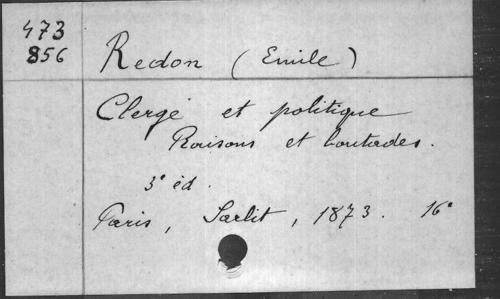 473
856
Redon (Emile)
Clergé et politique
Raisons et boutades.
3e éd.
Paris, Sarlit, 1873. 16°